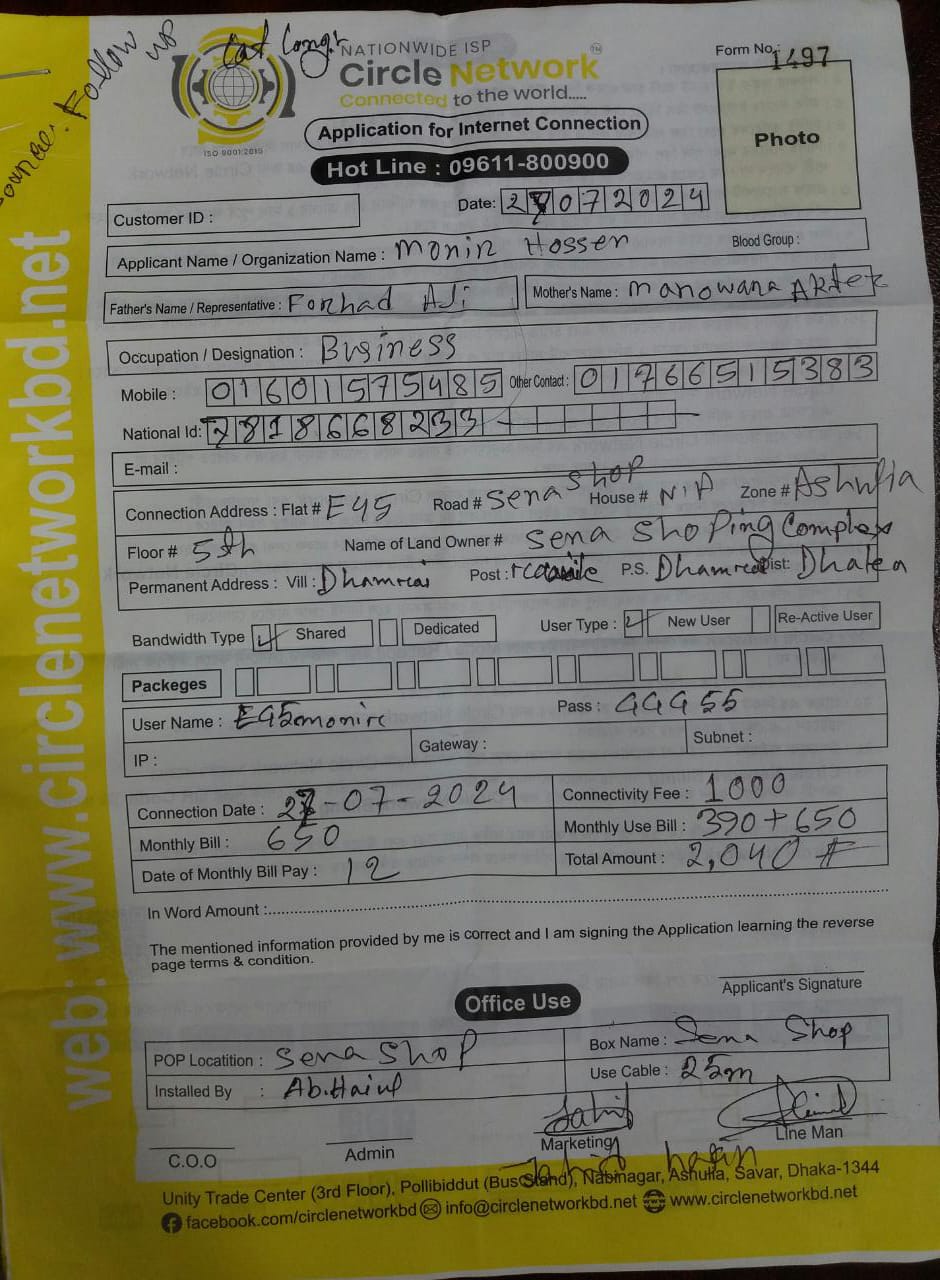 Follow up
Cat Long
NATIONWIDE ISP
Circle Network
Connected to the world.....
ISO 9001:2015
Form No.: 1497
Photo
Application for Internet Connection
Hot Line : 09611-800900
Date: 27072024
Customer ID :
Applicant Name / Organization Name : Monir Hossen Blood Group :
Father's Name / Representative : Forhad Ali Mother's Name : Manowara Akter
Occupation / Designation : Business
Mobile : 01601575485 Other Contact : 01766515383
National Id: 7818668233
E-mail :
Connection Address : Flat # E45 Road # Sena Shop House # N/A Zone # Ashulia
Floor # 5th Name of Land Owner # Sena Shoping Complex
Permanent Address : Vill : Dhamrai Post : P.S. Dhamrai Dist:
Bandwidth Type Shared Dedicated User Type : New User Re-Active User
Packeges
User Name : E45monir Pass : 44455
IP : Gateway : Subnet :
Connection Date : 27-07-2024 Connectivity Fee : 1000
Monthly Bill : 650 Monthly Use Bill : 390+650
Date of Monthly Bill Pay : 12 Total Amount : 2,040
In Word Amount :
The mentioned information provided by me is correct and I am signing the Application learning the reverse
page terms & condition.
Applicant's Signature
Office Use
POP Locatition : Sena Shop Box Name : Sena Shop
Installed By : Use Cable : 25m
C.O.O Admin Marketing Line Man
Unity Trade Center (3rd Floor), Pollibiddut (Bus Stand), Nabinagar, Ashulia, Savar, Dhaka-1344
facebook.com/circlenetworkbd info@circlenetworkbd.net www.circlenetworkbd.net
web: www.circlenetworkbd.net